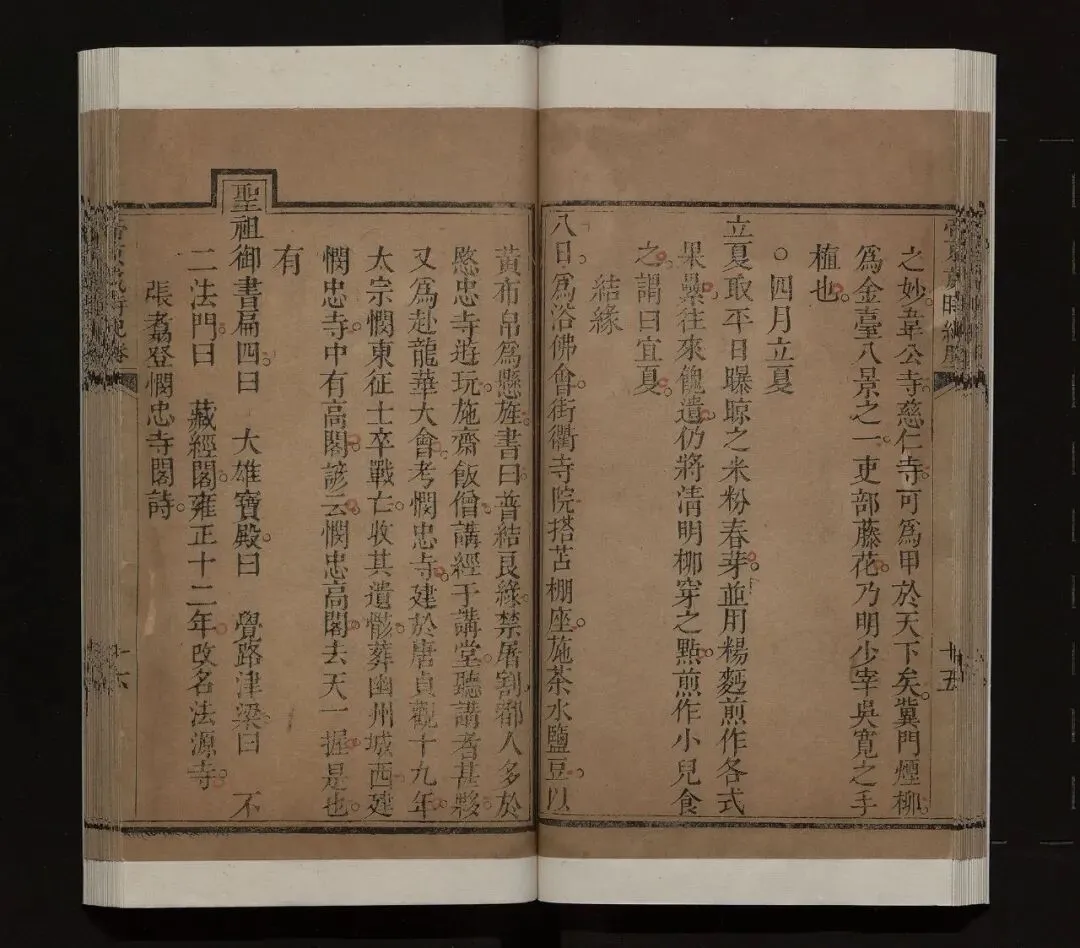 之妙韋公寺慈仁寺可爲甲於天下矣冀門煙柳
爲金臺八景之一吏部藤花乃明少宰吳寬之手
植也
○四月立夏
立夏取平日曝晾之米粉春芽並用糖麪煎作各式
果疊往來餽遺仍將清明柳穿之點煎作小兒食
之謂曰宜夏
結緣
八日爲浴佛會街衢寺院搭苫棚座施茶水鹽豆以
黃布帛爲懸旌書曰普結良緣禁屠割都人多於
愍忠寺遊玩施齋飯僧講經于講堂聽講者甚夥
又爲赴龍華大會考憫忠寺建於唐貞觀十九年
太宗憫東征士卒戰亡收其遺骸葬幽州城西建
憫忠寺中有高閣諺云憫忠高閣去天一握是也
有
聖祖御書扁四曰 大雄寶殿曰 覺路津梁曰 不
二法門曰 藏經閣雍正十二年改名法源寺
張翥登憫忠寺閣詩
十五
十六